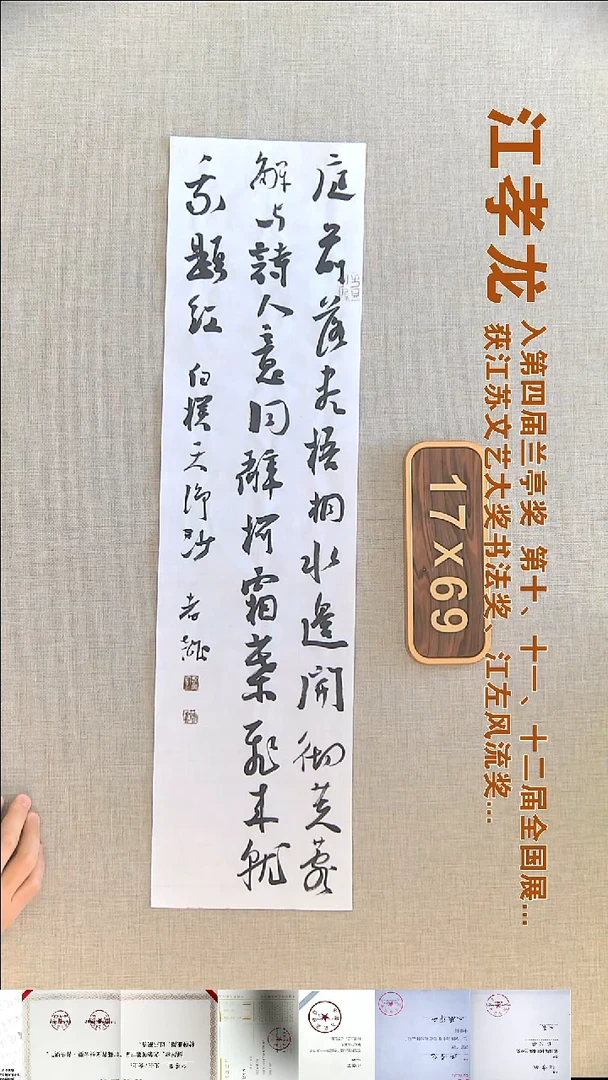 庭前落尽梧桐水邊開徹芙蓉
解与詩人意同辭柯霜葉飛来就
我題紅 白樸天淨沙 孝龍
江孝龙
入第四届兰亭奖 第十、十一、十二届全国展...
获江苏文艺大奖书法奖、江左风流奖...
17×69